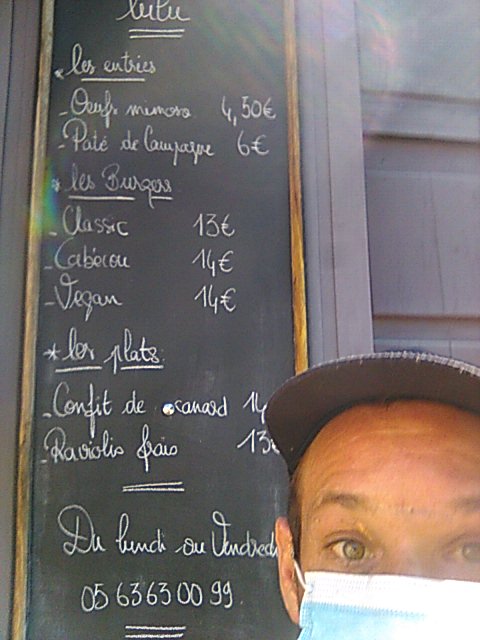 lulu
* les entrées
- Oeufs mimosa 4,50€
- Paté de Campagne 6€
* les Burgers
- Classic 13€
- Cabécou 14€
- Vegan 14€
* les plats
- Confit de canard 14
- Raviolis frais 13€
Du lundi au Vendredi
05 63 63 00 99